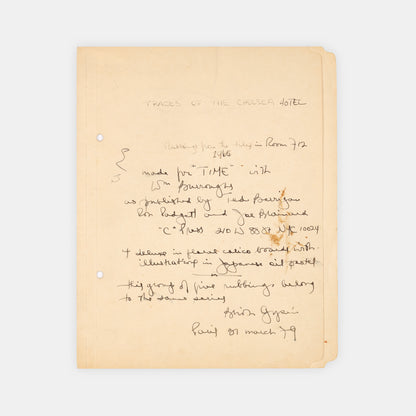 TRACES OF THE CHELSEA HOTEL
Rubbing from the tiles in Room 712
1966
made for "TIME" with
Wm Burroughs
as published by Ted Berrigan
Ron Padgett and Joe Brainard
"C" Press 210 W 88 St NYC 10024
+ deluxe in floral calico boards with
illustrations in Japanese oil pastel
this group of five rubbings belong
to the same series
Brion Gysin
Paris 31 march 79